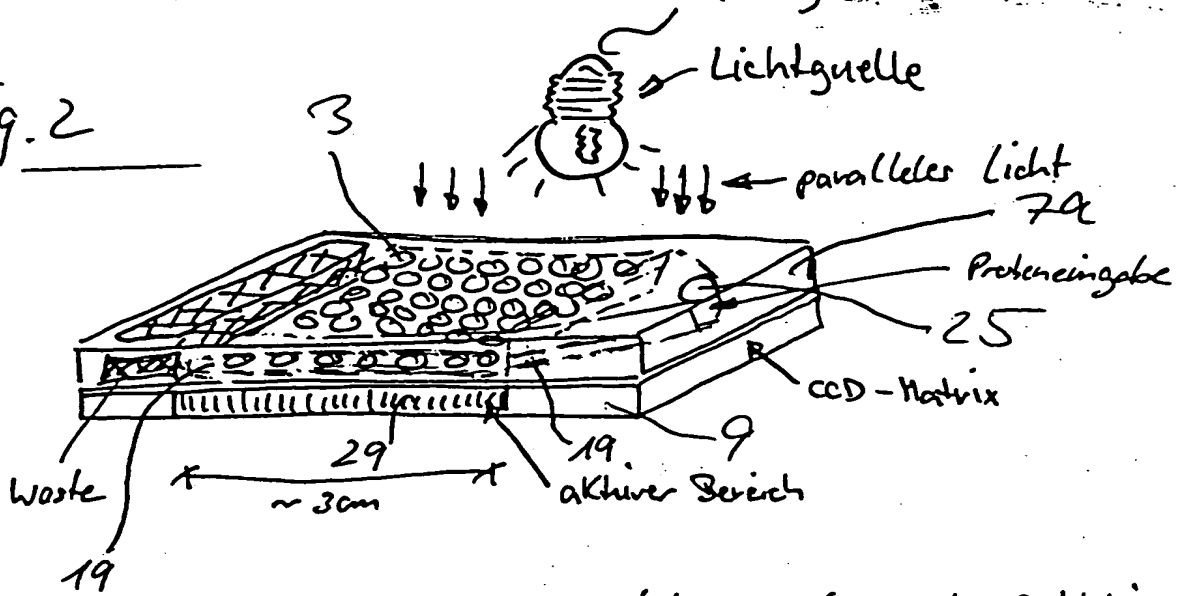 g. 2
3
Lichtquelle
paralleles Licht
7a
Proteneingabe
25
CCD-Matrix
9
19
29
aktiver Bereich
~ 3cm
waste
19